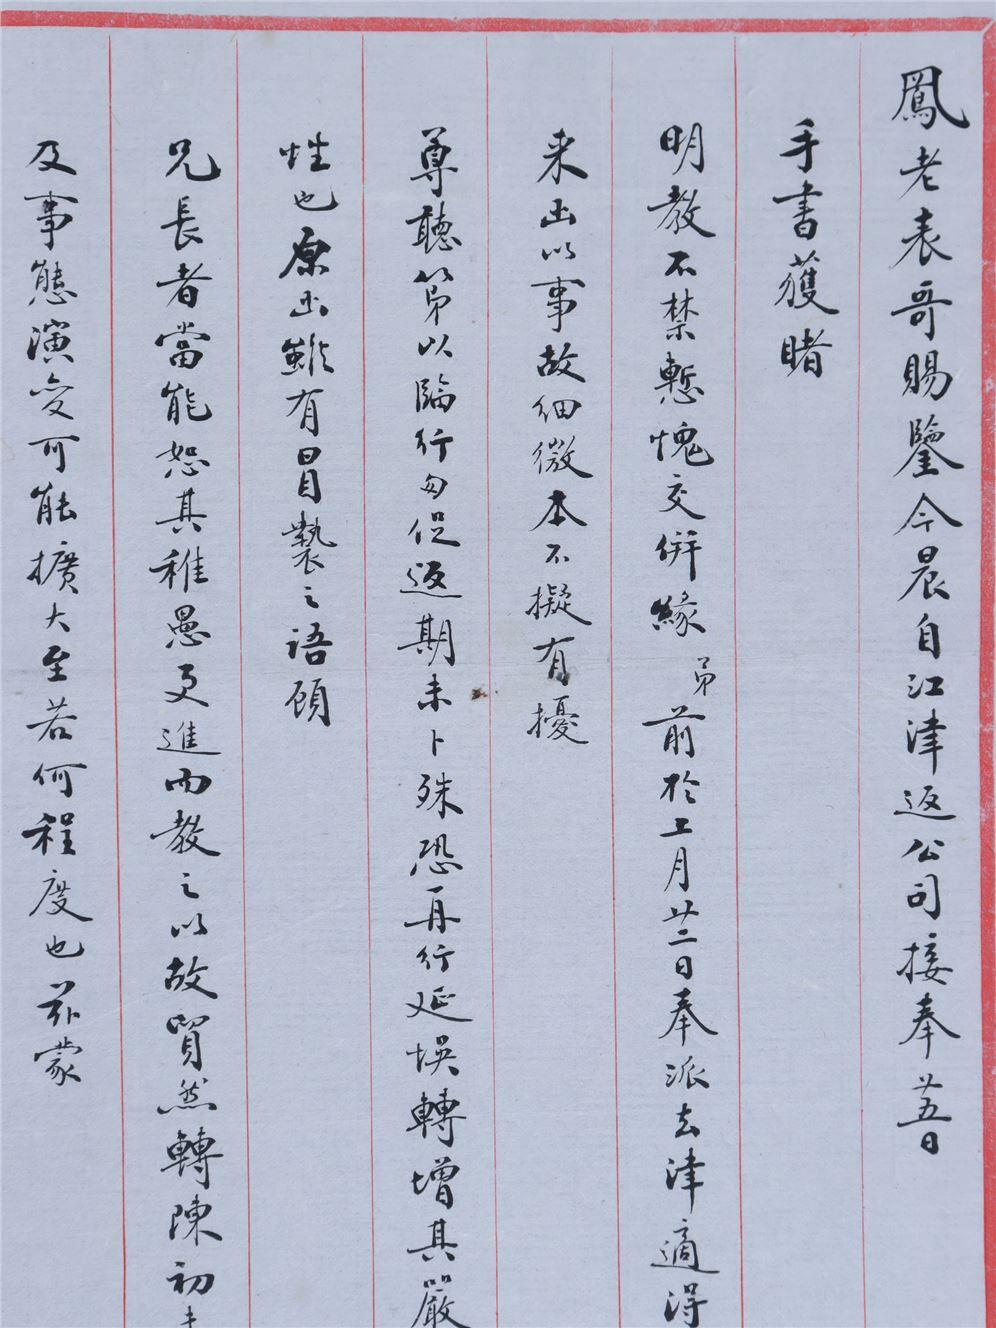 鳳老表哥賜鑒今晨自江津返公司接奉廿五日
手書獲睹
明教不禁慙愧交併緣弟前於上月廿二日奉派去津適得
来函以事故細微本不擬有擾
尊聽第以臨行匆促返期未卜殊恐再行延悞轉增其嚴
性也原函雖有冒褻之語顧
兄長者當能恕其稚愚更進而教之以故貿然轉陳初
及事態演变可能擴大至若何程度也茲蒙